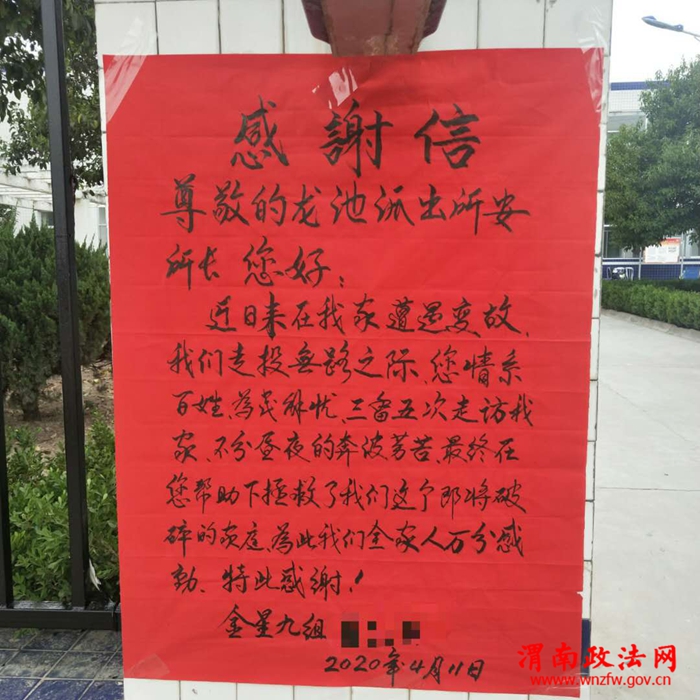 感謝信
尊敬的龙池派出所安
所长您好：
近日来在我家遭遇变故、
我们走投無路之际、您情系
百姓、為民解忧、三番五次走访我
家、不分昼夜的奔波劳苦、最终在
您帮助下拯救了我们这个即将破
碎的家庭、為此我们全家人万分感
动、特此感谢！
金星九组
2020年4月11日
渭南政法网
www.wnzfw.gov.cn